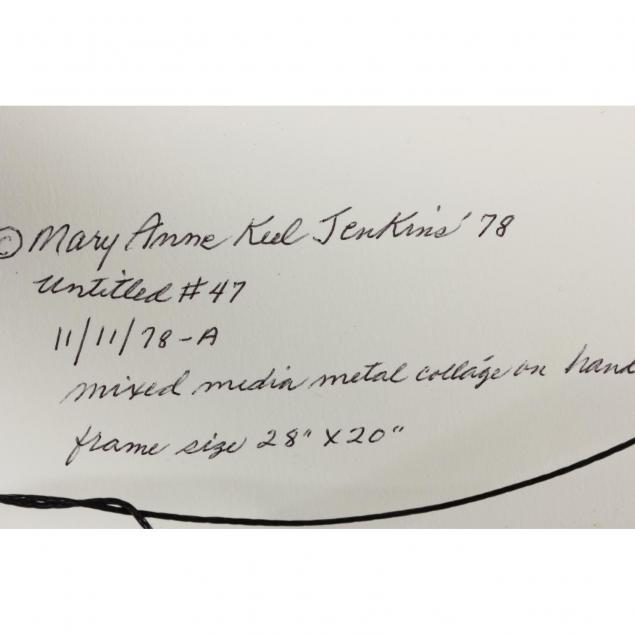 © Mary Anne Keel Jenkins '78
Untitled #47
11/11/78-A
mixed media metal collage on hand
frame size 28" x 20"